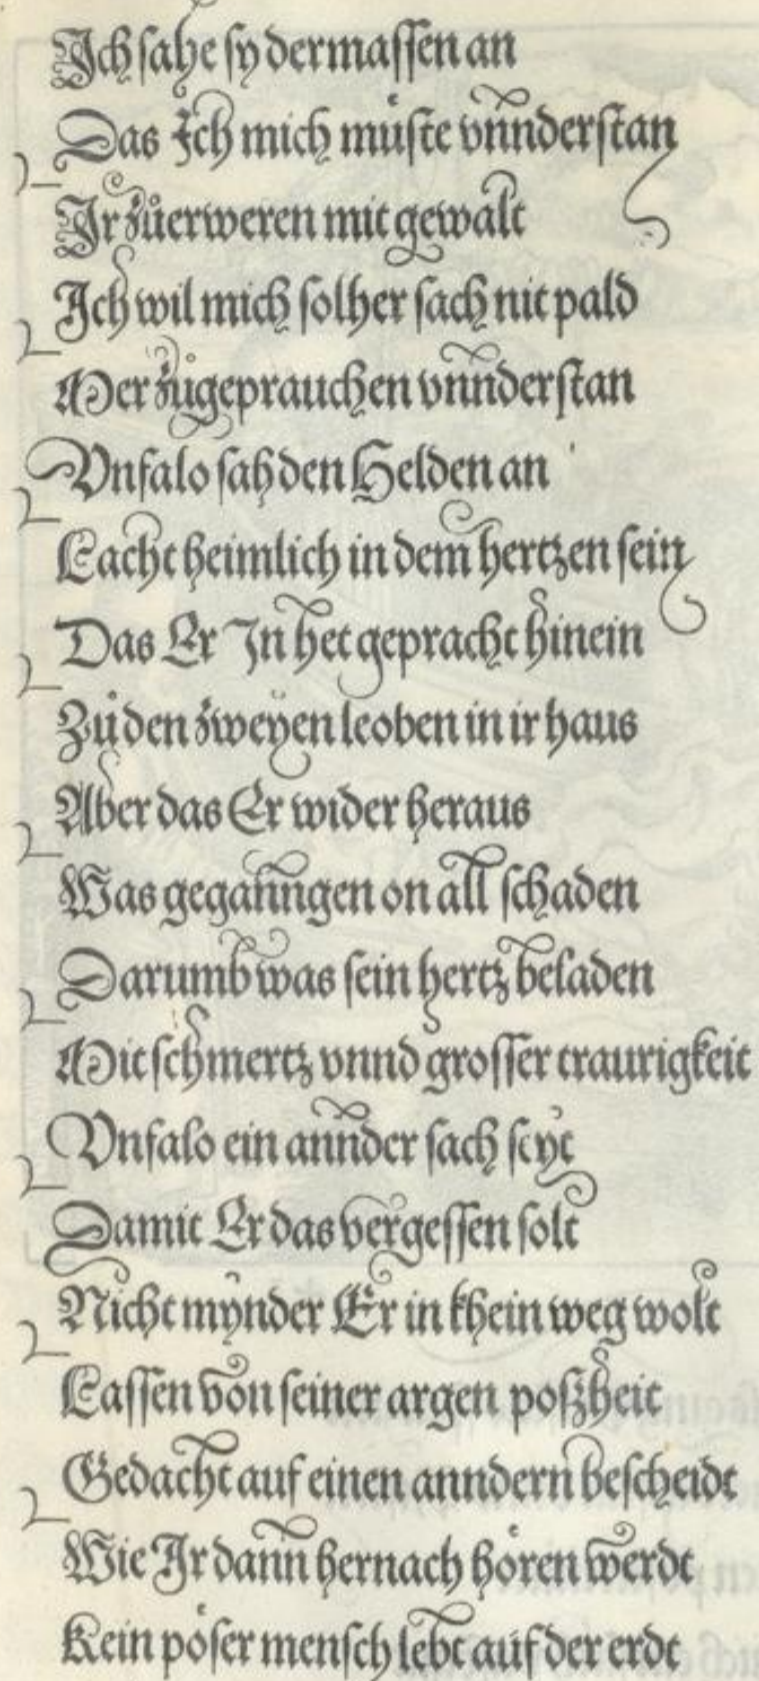 Ich sahe sy dermassen an
Das Ich mich müste vnnderstan
Ir zůerweren mit gewalt
Ich wil mich solher sach nit pald
Mer zůgeprauchen vnnderstan
Vnfalo sah den Helden an
Lacht heimlich in dem hertzen sein
Das Er In het gepracht hinein
Zů den zweyen leoben in ir haus
Aber das Er wider heraus
Was geganngen on all schaden
Darumb was sein hertz beladen
Mit schmertz vnnd grosser traurigkeit
Vnfalo ein annder sach seyt
Damit Er das vergessen solt
Nicht mynder Er in khein weg wolt
Lassen von seiner argen poßheit
Gedacht auf einen anndern bescheidt
Wie Ir dann hernach hören werdt
Kein pöser mensch lebt auf der erdt